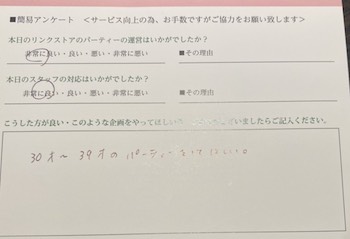 ■簡易アンケート ＜サービス向上の為、お手数ですがご協力をお願い致します＞
本日のリンクストアのパーティーの運営はいかがでしたか？
非常に良い・良い・悪い・非常に悪い ■その理由
本日のスタッフの対応はいかがでしたか？
非常に良い・良い・悪い・非常に悪い ■その理由
こうした方が良い・このような企画をやってほしい ましたらご記入ください。
30才～39才のパーティーをしてほしい。